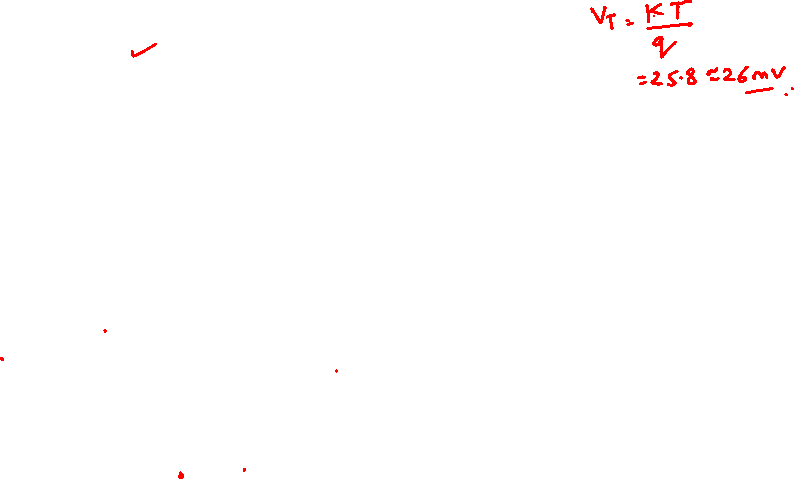 ✓
V_T = KT/q
= 25.8 ≃ 26mV